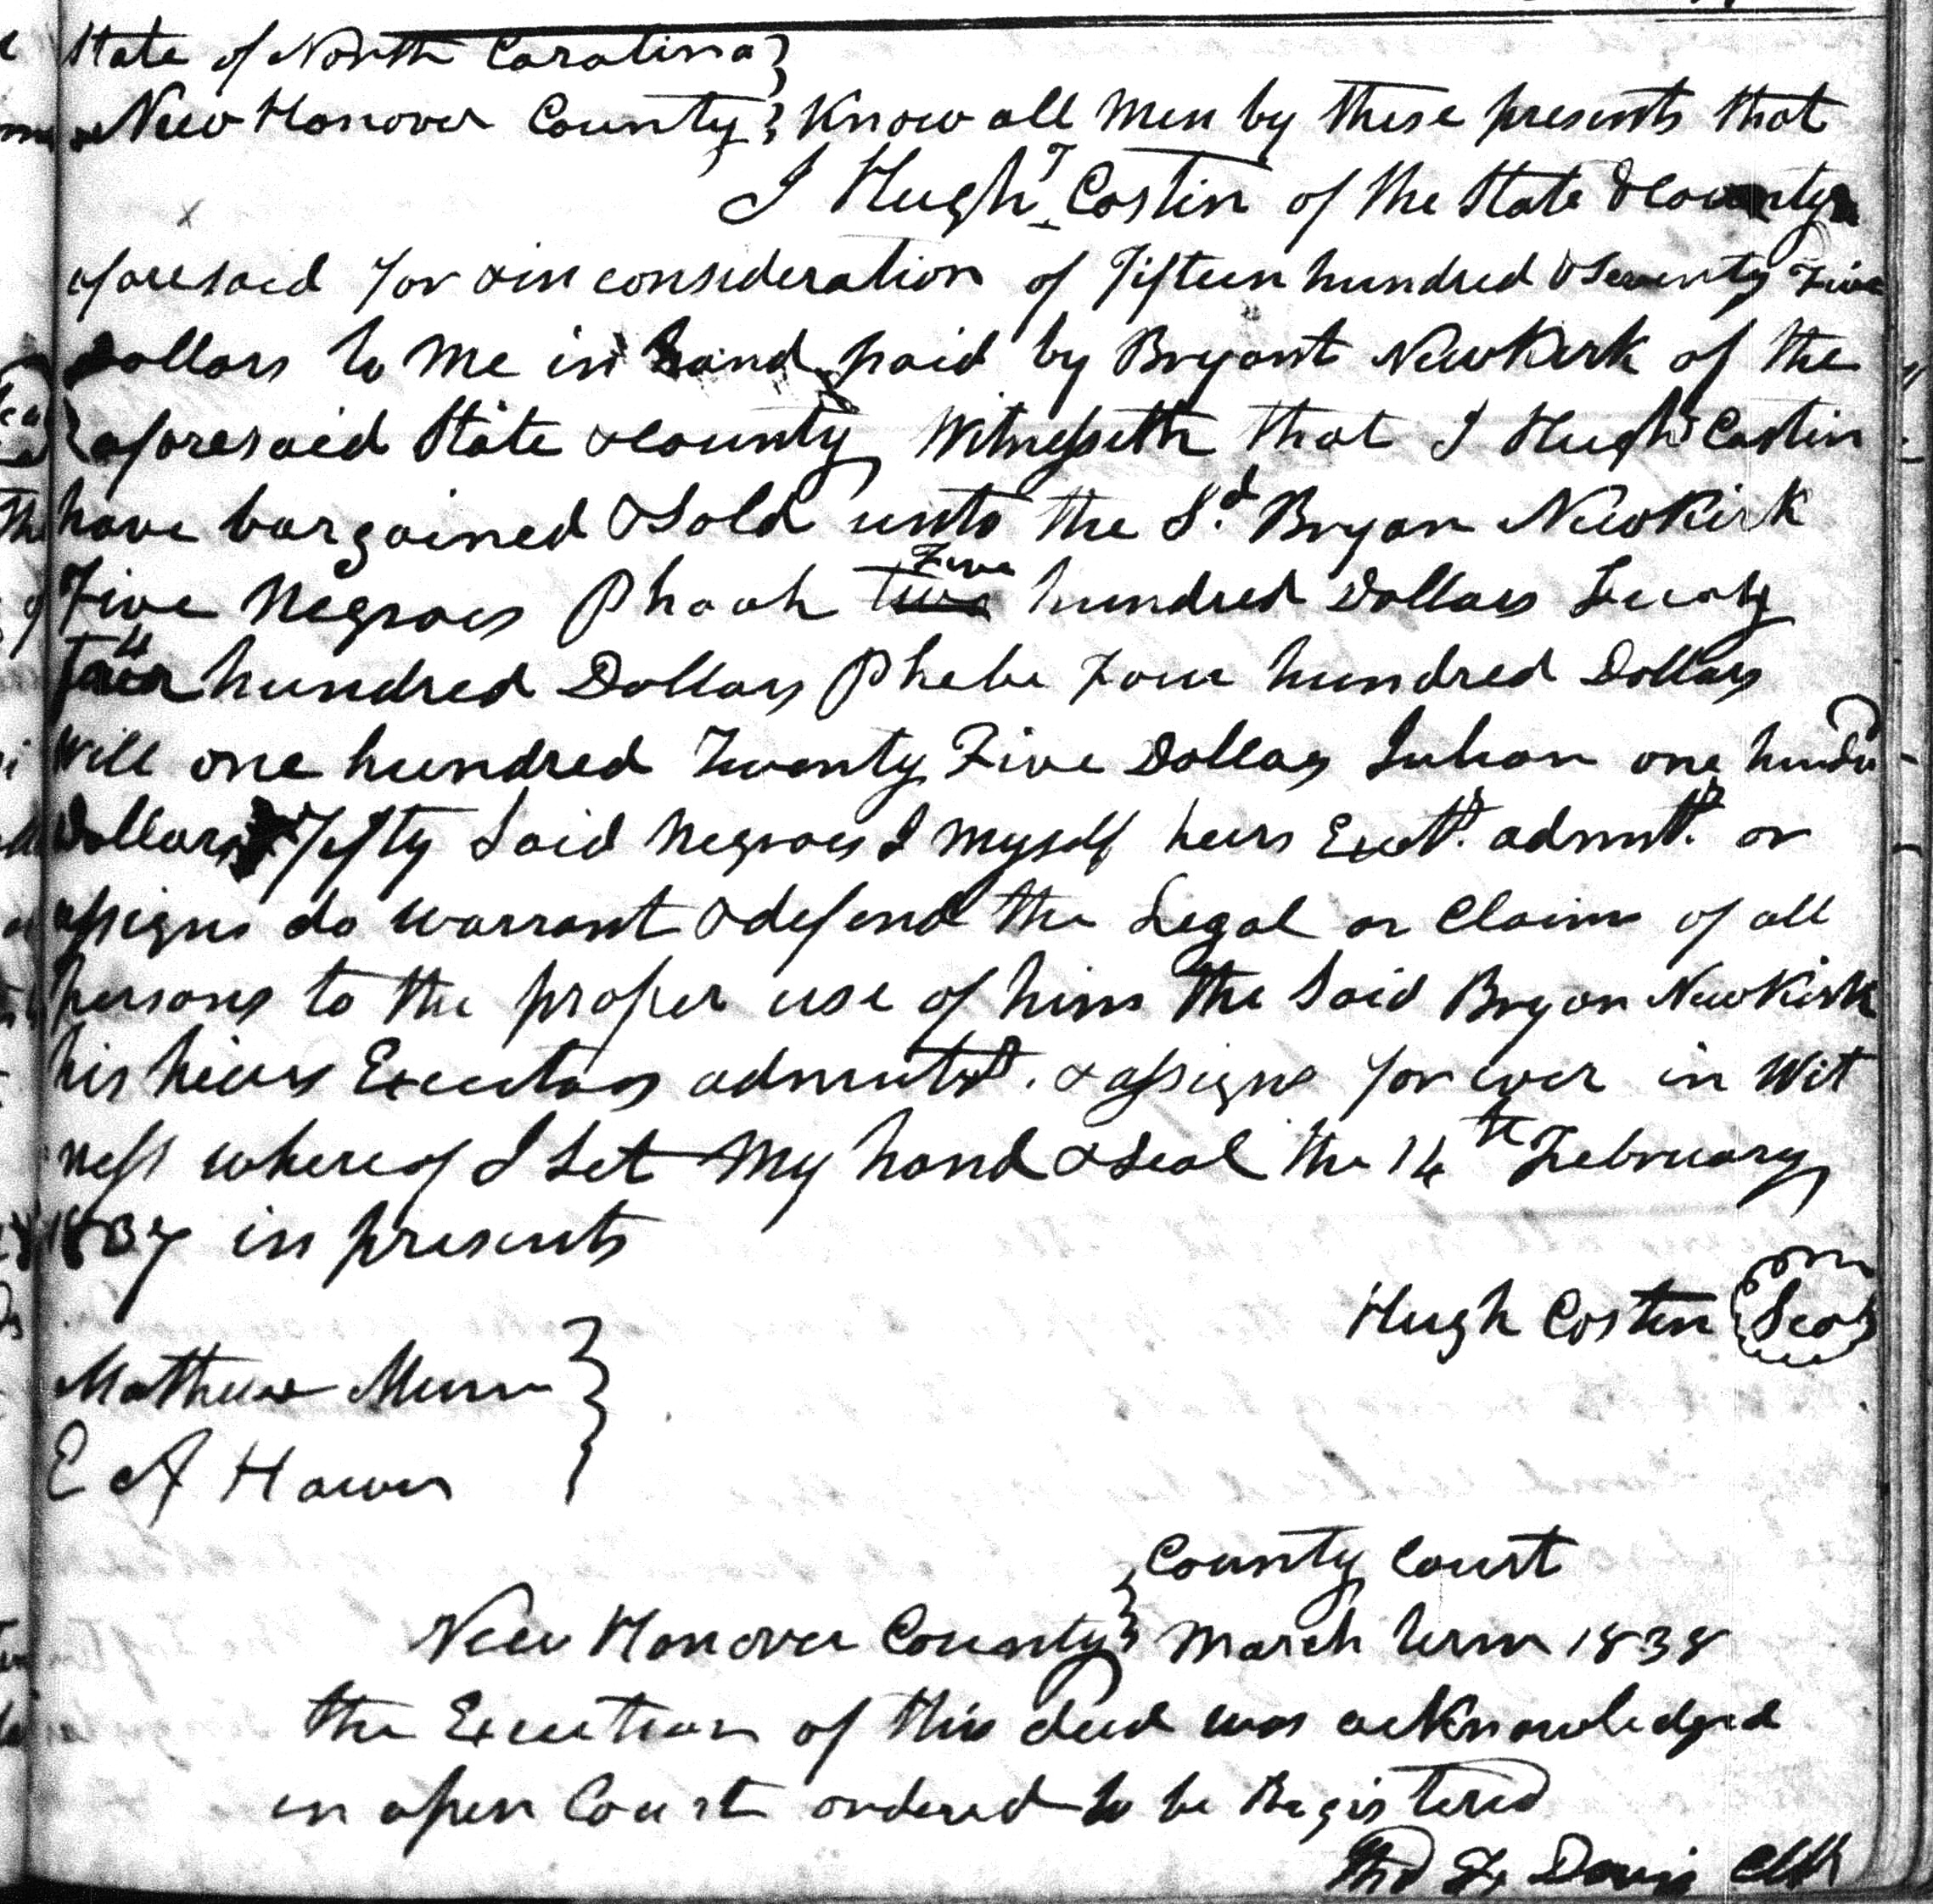 State of North Carolina
New Hanover County Know all Men by these presents that
I Hugh T Costin of the State & County
aforesaid for & in consideration of Fifteen hundred & Seventy Five
Dollars to me in hand paid by Bryant NewKirk of the
aforesaid State & County Witnesseth that I Hugh Costin
have bargained & Sold unto the Sd. Bryan NewKirk
Five Negroes Phoah Five hundred Dollars
four hundred Dollars Phebe Four hundred Dollars
Will one hundred Twenty Five Dollars one hundr
Dollars Fifty Said Negroes I myself heirs Exet. admt. or
assigns do warrant & defend the Legal or Claim of all
persons to the proper use of him the Said Bryan NewKirk
his heirs Executors & assigns for ever in Wit
ness whereof I Set My hand & Seal the 14th February
1837 in presents
Hugh Costen Seal
Mathew Munn
E A Hawes
County Court
New Hanover County March Term 1838
the Execution of this deed was acKnowledged
in open Court ordered to be Registered
Davis Clk